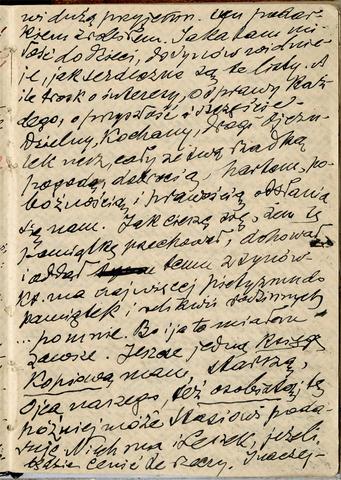 wi dużą przyjem. Um podar-
kiem zrobiłem. Jaka tam mi-
łość do dzieci, do synów widnie-
je, jak serdeczne są te listy. A
ile trosk o interesy, o sprawy każ-
dego, o przyszłość i szczęście.
Dzielny, Kochany, drogi Człow-
iek nasz, cały ze swą rzadką
pogodą, dobrocią, hartem, po-
bożnością i prawością odsłania
się nam. Jak cieszę się, żem tę
pamiątkę przechował, dochował
i oddał temu z synów
kt. ma najwięcej pietyzmu do
pamiątek i rodzinnych
... po mnie. Bo i ja to miałem
zawsze. Jeszcze jedną Księgę
Kopiową mam, starszą,
Ojca naszego też osobistą, tę
później może Stasiowi poda-
ruję Niech ma i Leszek, jeżeli
będzie cenić te rzeczy. Inaczej-